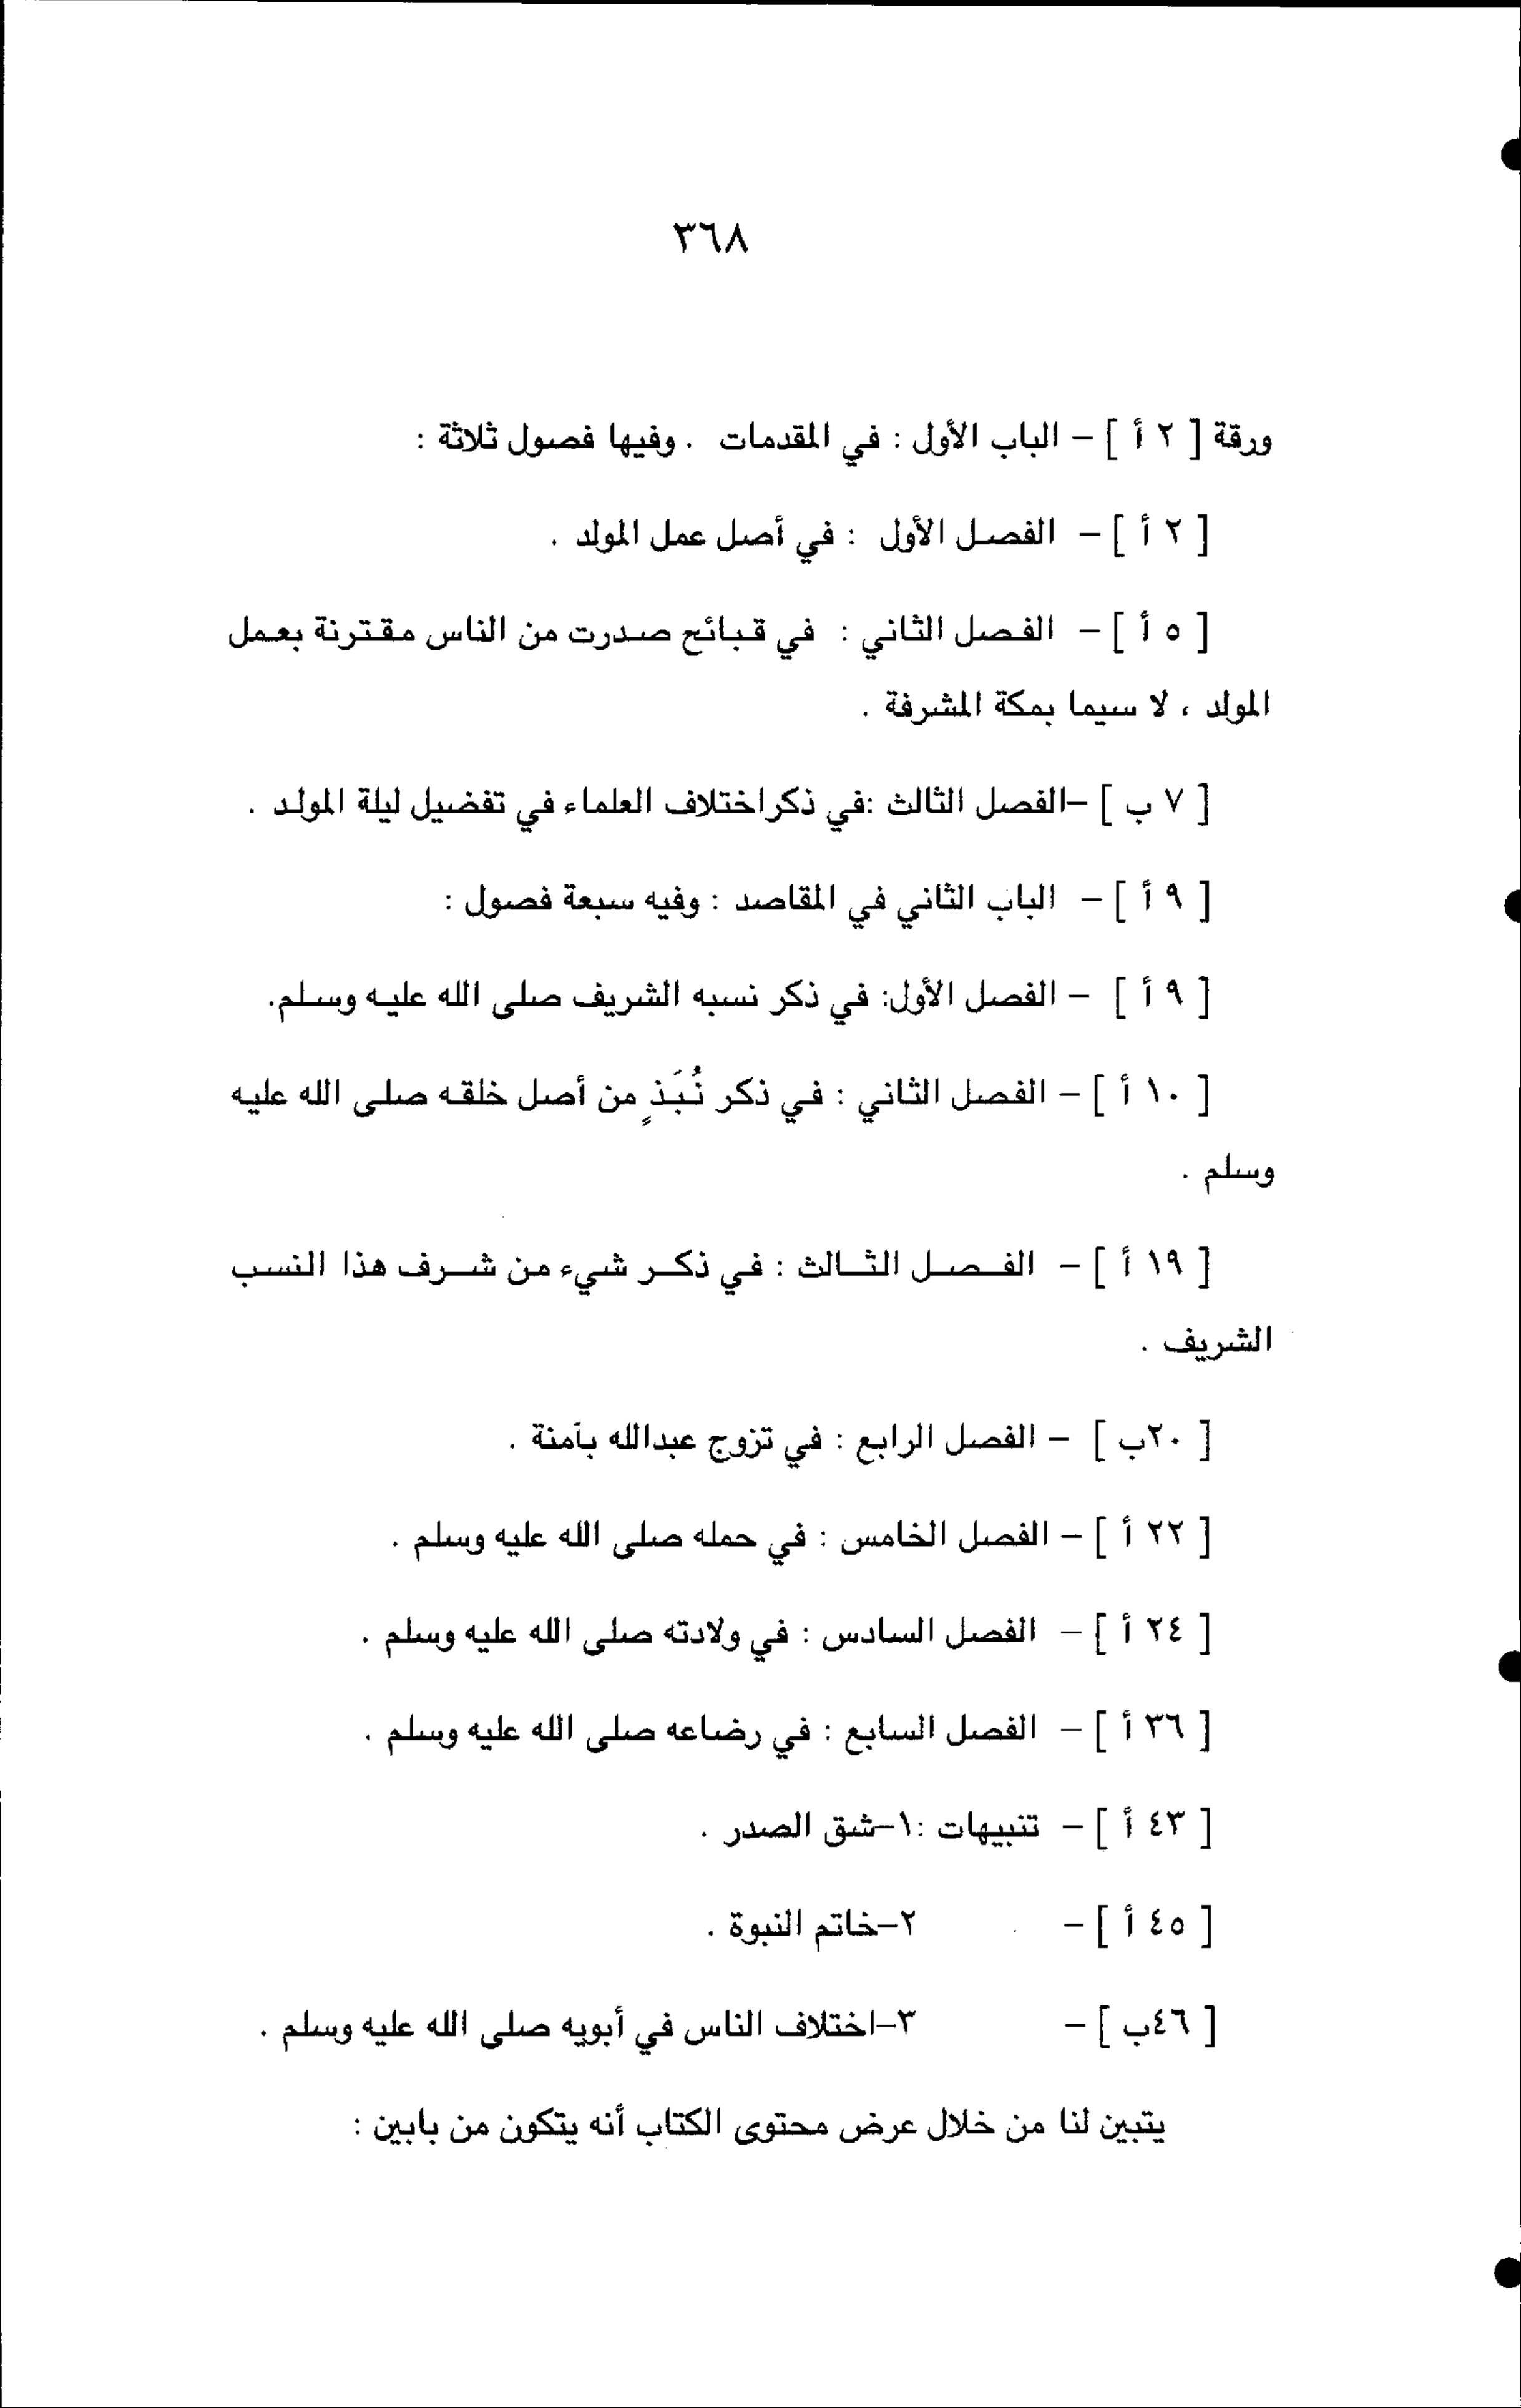 ٣٦٨
ورقة [ ٢ أ ] – الباب الأول : في المقدمات . وفيها فصول ثلاثة :
[ ٢ أ ] – الفصل الأول : في أصل عمل المولد .
[ ٥ أ ] – الفصل الثاني : في قبائح صدرت من الناس مقترنة بعمل
المولد ، لا سيما بمكة المشرفة .
[ ٧ ب ] –الفصل الثالث :في ذكراختلاف العلماء في تفضيل ليلة المولد .
[ ٩ أ ] – الباب الثاني في المقاصد : وفيه سبعة فصول :
[ ٩ أ ] – الفصل الأول: في ذكر نسبه الشريف صلى الله عليه وسلم.
[ ١٠ أ ] – الفصل الثاني : في ذكر نُبَذٍ من أصل خلقه صلى الله عليه
وسلم .
[ ١٩ أ ] – الفصل الثالث : في ذكر شيء من شرف هذا النسب
الشريف .
[ ٢٠ب ] – الفصل الرابع : في تزوج عبدالله بآمنة .
[ ٢٢ أ ] – الفصل الخامس : في حمله صلى الله عليه وسلم .
[ ٢٤ أ ] – الفصل السادس : في ولادته صلى الله عليه وسلم .
[ ٣٦ أ ] – الفصل السابع : في رضاعه صلى الله عليه وسلم .
[ ٤٣ أ ] – تنبيهات :١–شق الصدر .
[ ٤٥ أ ] – ٢–خاتم النبوة .
[ ٤٦ب ] – ٣–اختلاف الناس في أبويه صلى الله عليه وسلم .
يتبين لنا من خلال عرض محتوى الكتاب أنه يتكون من بابين :